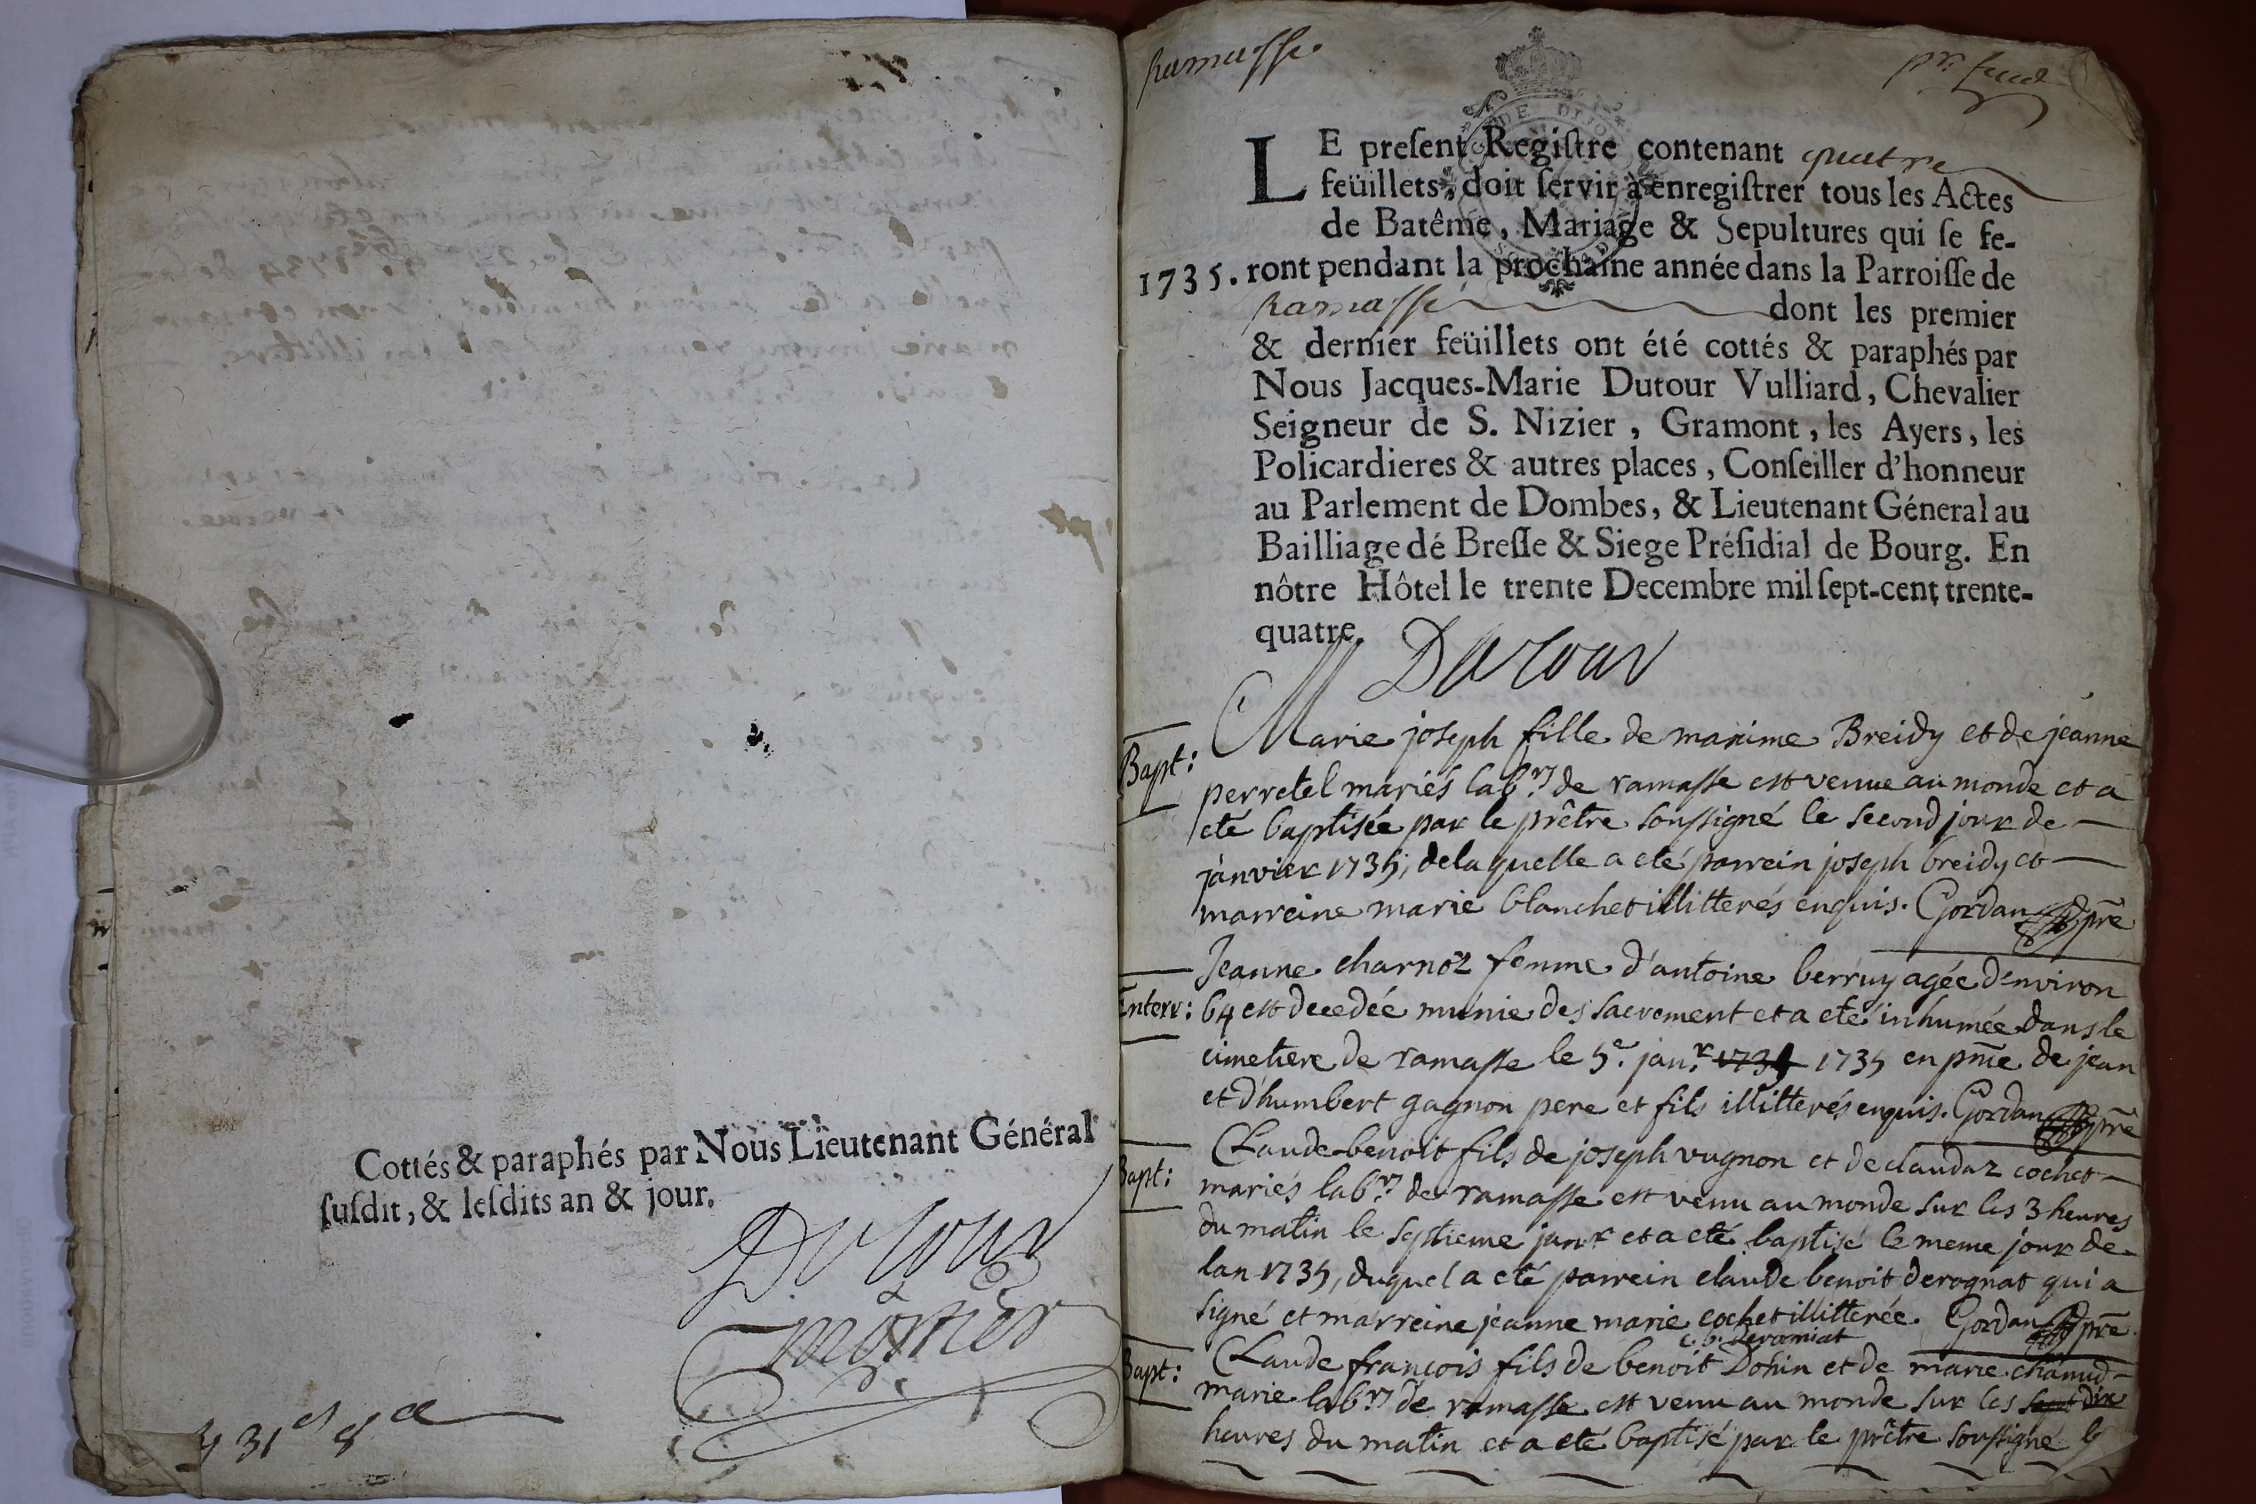 Cottés & paraphés par Nous Lieutenant Général
ſuſdit, & leſdits an & jour.
Dutour
Ramasse
LE preſent Regiſtre contenant quatre
feüillets, doit ſervir à enregiſtrer tous les Actes
de Batême, Mariage & Sepultures qui ſe fe-
1735. ront pendant la prochaine année dans la Parroiſſe de
Ramasse dont les premier
& dernier feüillets ont été cottés & paraphés par
Nous Jacques-Marie Dutour Vulliard, Chevalier
Seigneur de S. Nizier, Gramont, les Ayers, les
Policardieres & autres places, Conſeiller d'honneur
au Parlement de Dombes, & Lieutenant Géneral au
Bailliage dé Breſſe & Siege Préſidial de Bourg. En
nôtre Hôtel le trente Decembre mil ſept-cent trente-
quatre.
Dutour
Bapt: Marie joseph fille de maxime Breidy et de jeanne
perretel mariés labrs de ramasse est venue au monde et a
eté baptisée par le prêtre soussigné le second jour de
janvier 1735, de laquelle a eté parrein joseph breidy et
marreine marie blanchet illitterés enquis. Gordan pre
Enterr: Jeanne charnoz femme d'antoine berruy agée denviron
64 est decedée munie des sacrement et a eté inhumée dans le
cimetiere de ramasse le 5e. janr 1734 1735 en pnce de jean
et d'humbert gagnon pere et fils illitterés enquis. Gordan pre
Bapt: Claude benoit fils de joseph vugnon et de claudaz cochet
mariés labrs de ramasse est venu au monde sur les 3 heures
du matin le septieme janr et a eté baptisé le meme jour de
lan 1735, duquel a eté parrein claude benoit derognat qui a
signé et marreine jeanne marie cochet illitterée. Gordan pre
Bapt: Claude françois fils de benoit Dohin et de marie chanud
marie labrs de ramasse est venu au monde sur les sept dix
heures du matin et a eté baptisé par le prêtre soussigné le